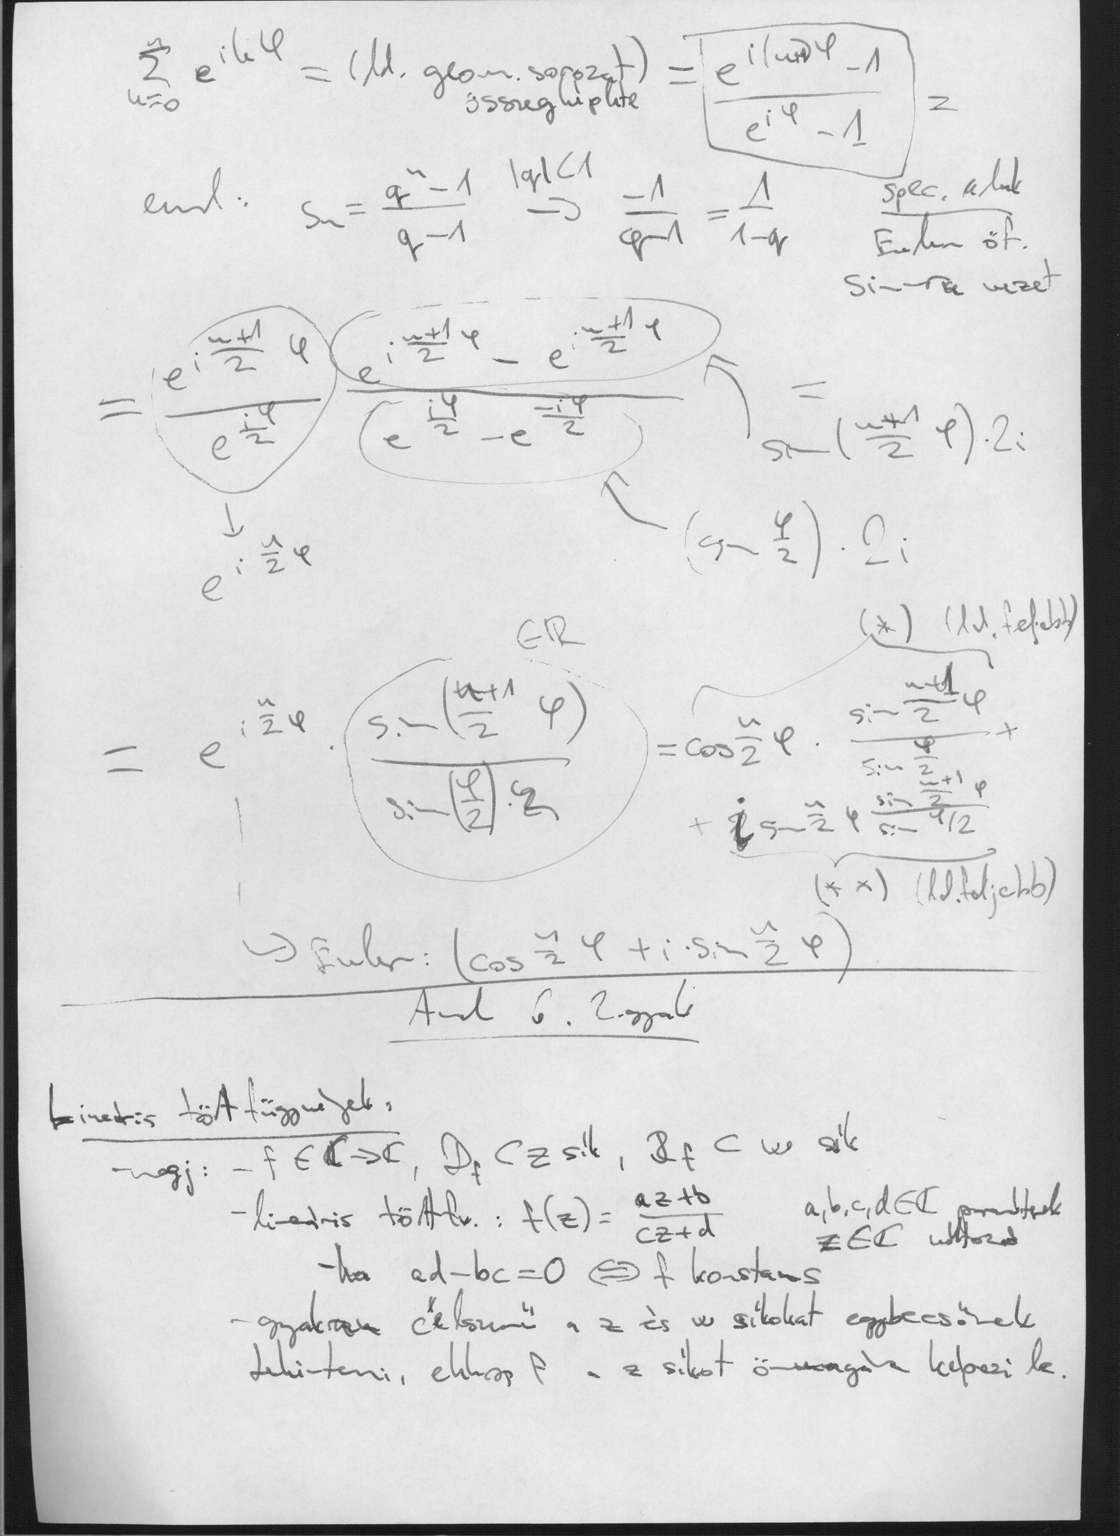 n
Σ e^{ikφ} = (ld. geom. sorozat) = (e^{i(n+1)φ} - 1)/(e^{iφ} - 1) =
k=0
összegképlete
eml: s_n = (q^n - 1)/(q - 1) |q|<1 → -1/(q-1) = 1/(1-q)
spec. alak
Euler öf.
sin-ra vezet
= e^{i (n+1)/2 φ}/e^{iφ/2} (e^{i (n+1)/2 φ} - e^{i (n+1)/2 φ})/(e^{iφ/2} - e^{-iφ/2}) =
sin((n+1)/2 φ)·2i
↓
(sin φ/2) · 2i
e^{i n/2 φ}
(*) (ld. feljebb)
∈ℝ
= e^{i n/2 φ} · sin((n+1)/2 φ)/sin(φ/2) = cos n/2 φ · (sin (n+1)/2 φ)/(sin φ/2) +
+ i sin n/2 φ (sin (n+1)/2 φ)/(sin φ/2)
(**) (ld. feljebb)
↪ Euler: (cos n/2 φ + i·sin n/2 φ)
Anal 6. 2. gyak
Lineáris törtfüggvények.
-megj: - f ∈ ℂ→ℂ, D_f ⊂ z sík, R_f ⊂ w sík
-lineáris törtfv.: f(z) = (az+b)/(cz+d) a,b,c,d∈ℂ paraméterek
z∈ℂ változó
-ha ad-bc=0 ⇔ f konstans
-gyakran célszerű a z és w síkokat egybeesőnek
tekinteni, ekkor f a z síkot önmagára képezi le.